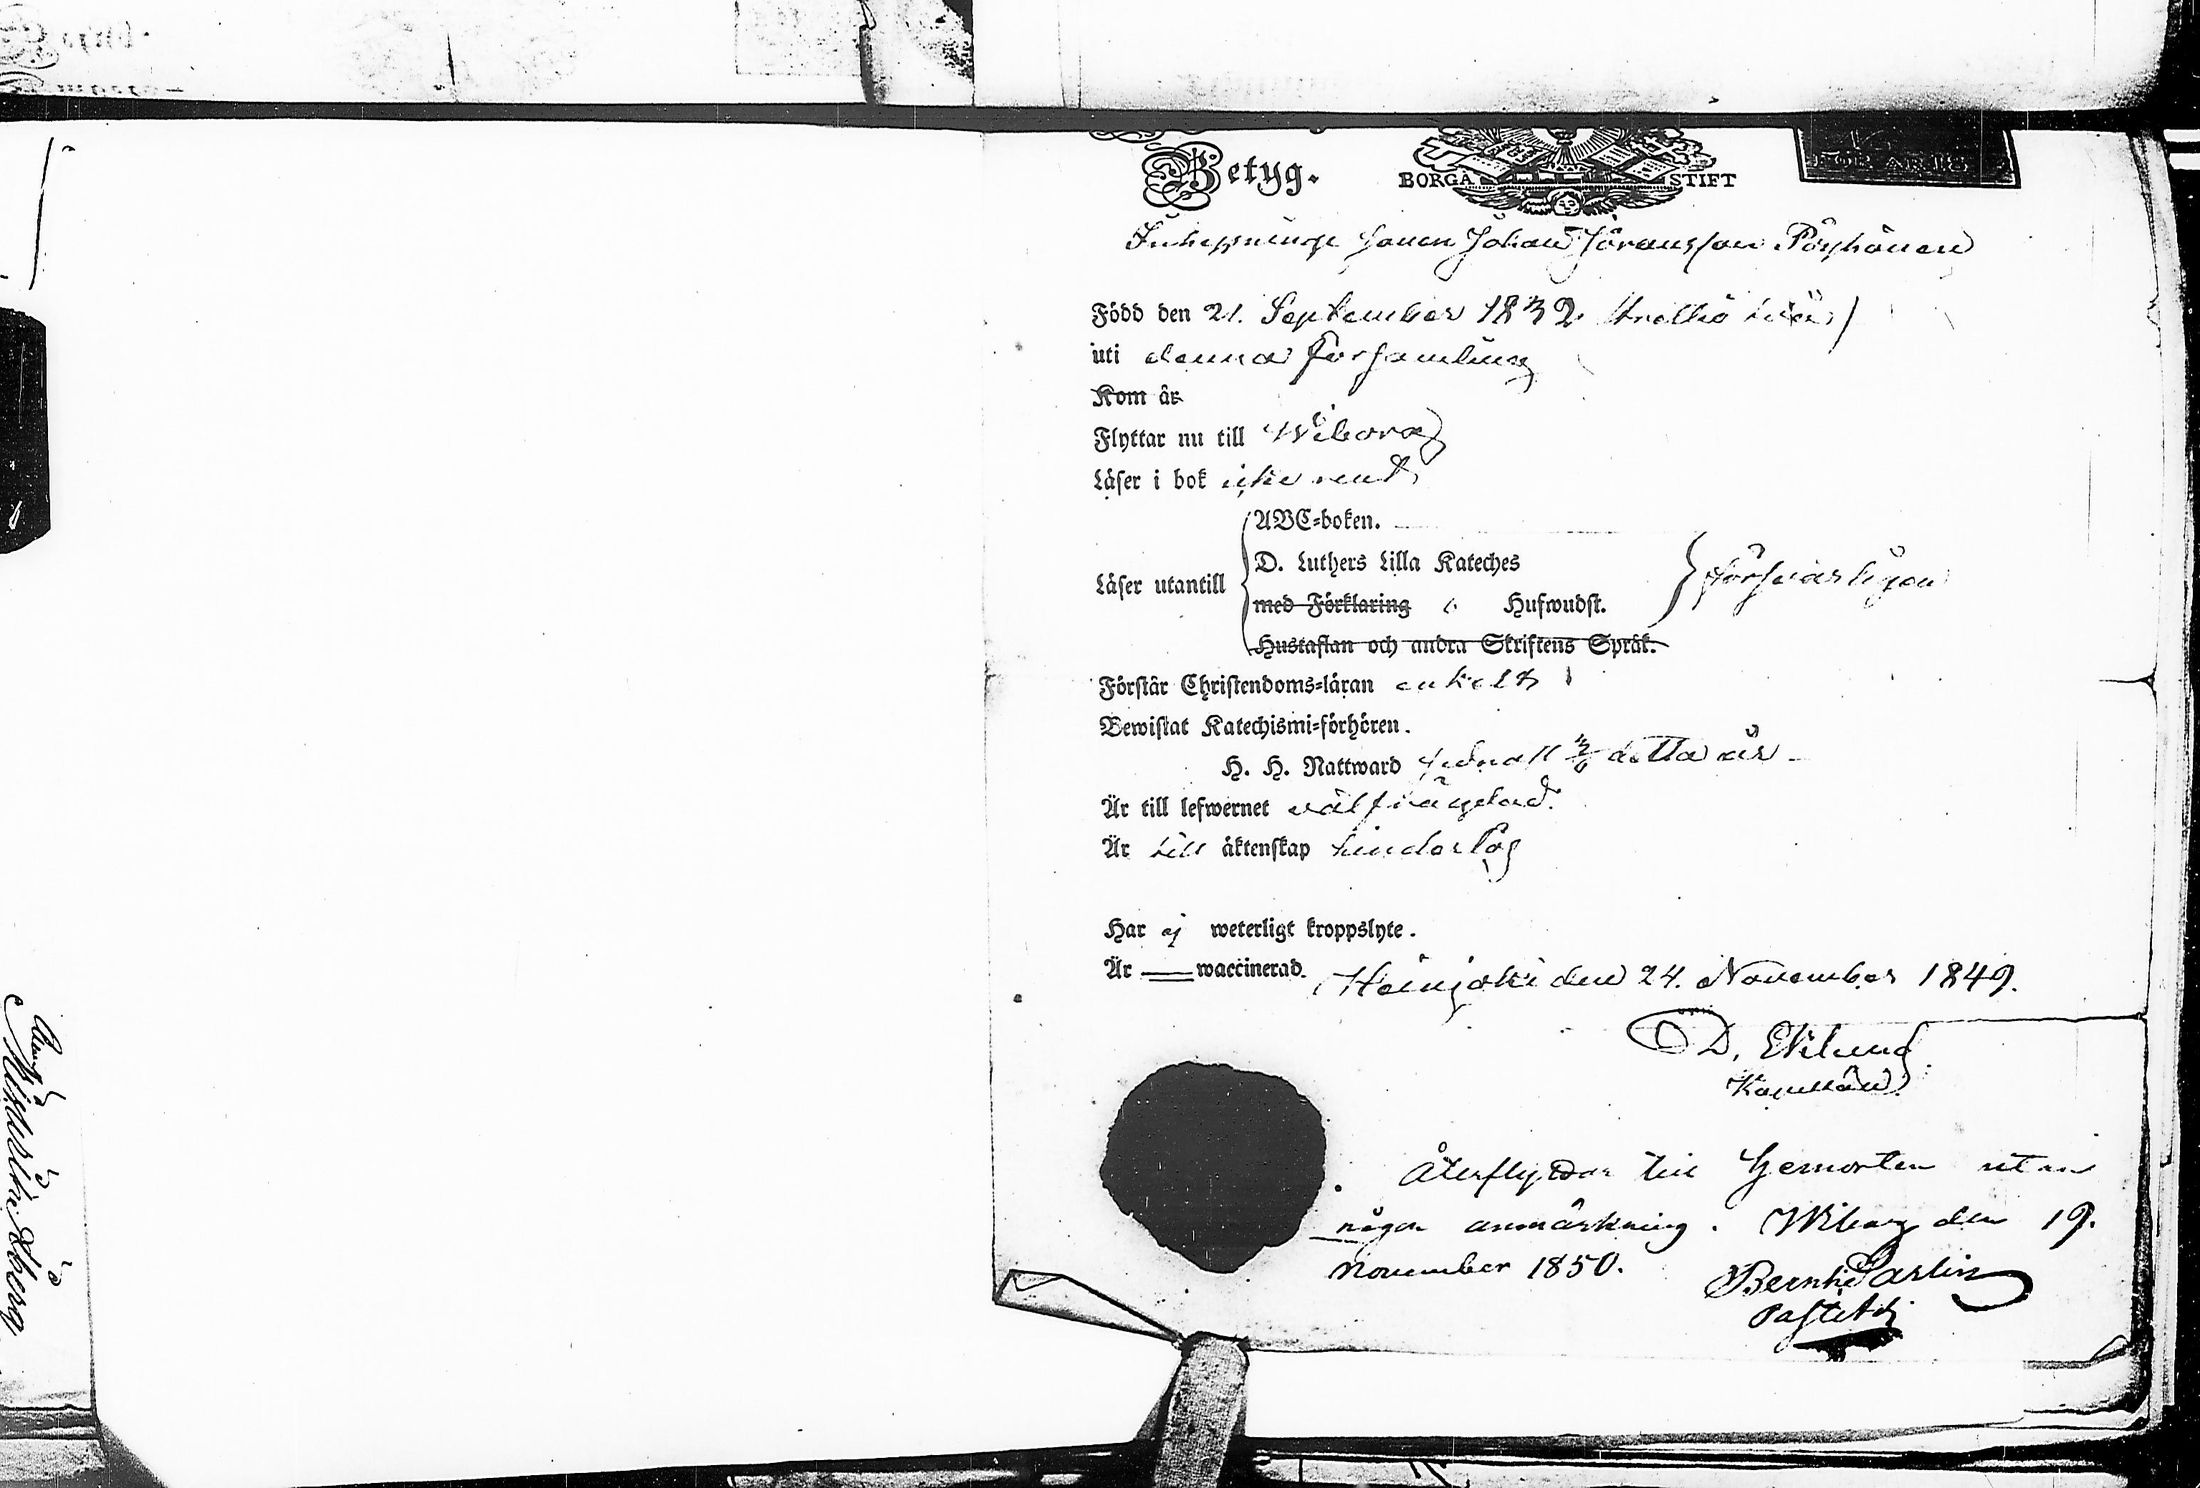 Betyg.
BORGÅ STIFT
FÖR ÅR 18
Inhysninge sonen Johan Jöransson Pöyhönen
Född den 21. September 1832
uti denna Församling
Kom år
Flyttar nu till Wiborg
Läser i bok icke rent
ABC-boken.
D. Luthers Lilla Kateches
Läser utantill försvarligen
med Förklaring Hufwudst.
Hustaflan och andra Skriftens Språk.
Förstår Christendoms-läran enkelt
Bewistat Katechismi-förhören.
H. H. Nattward detta år
Är till lefwernet välfrägdad.
Är till äktenskap hinderlös
Har ej weterligt kroppslyte.
Är waccinerad.
Heinjoki den 24. November 1849.
D. Eklund
Kapellan
Återflyttar till Hemorten utan
någon anmärkning. Wiborg den 19.
November 1850.